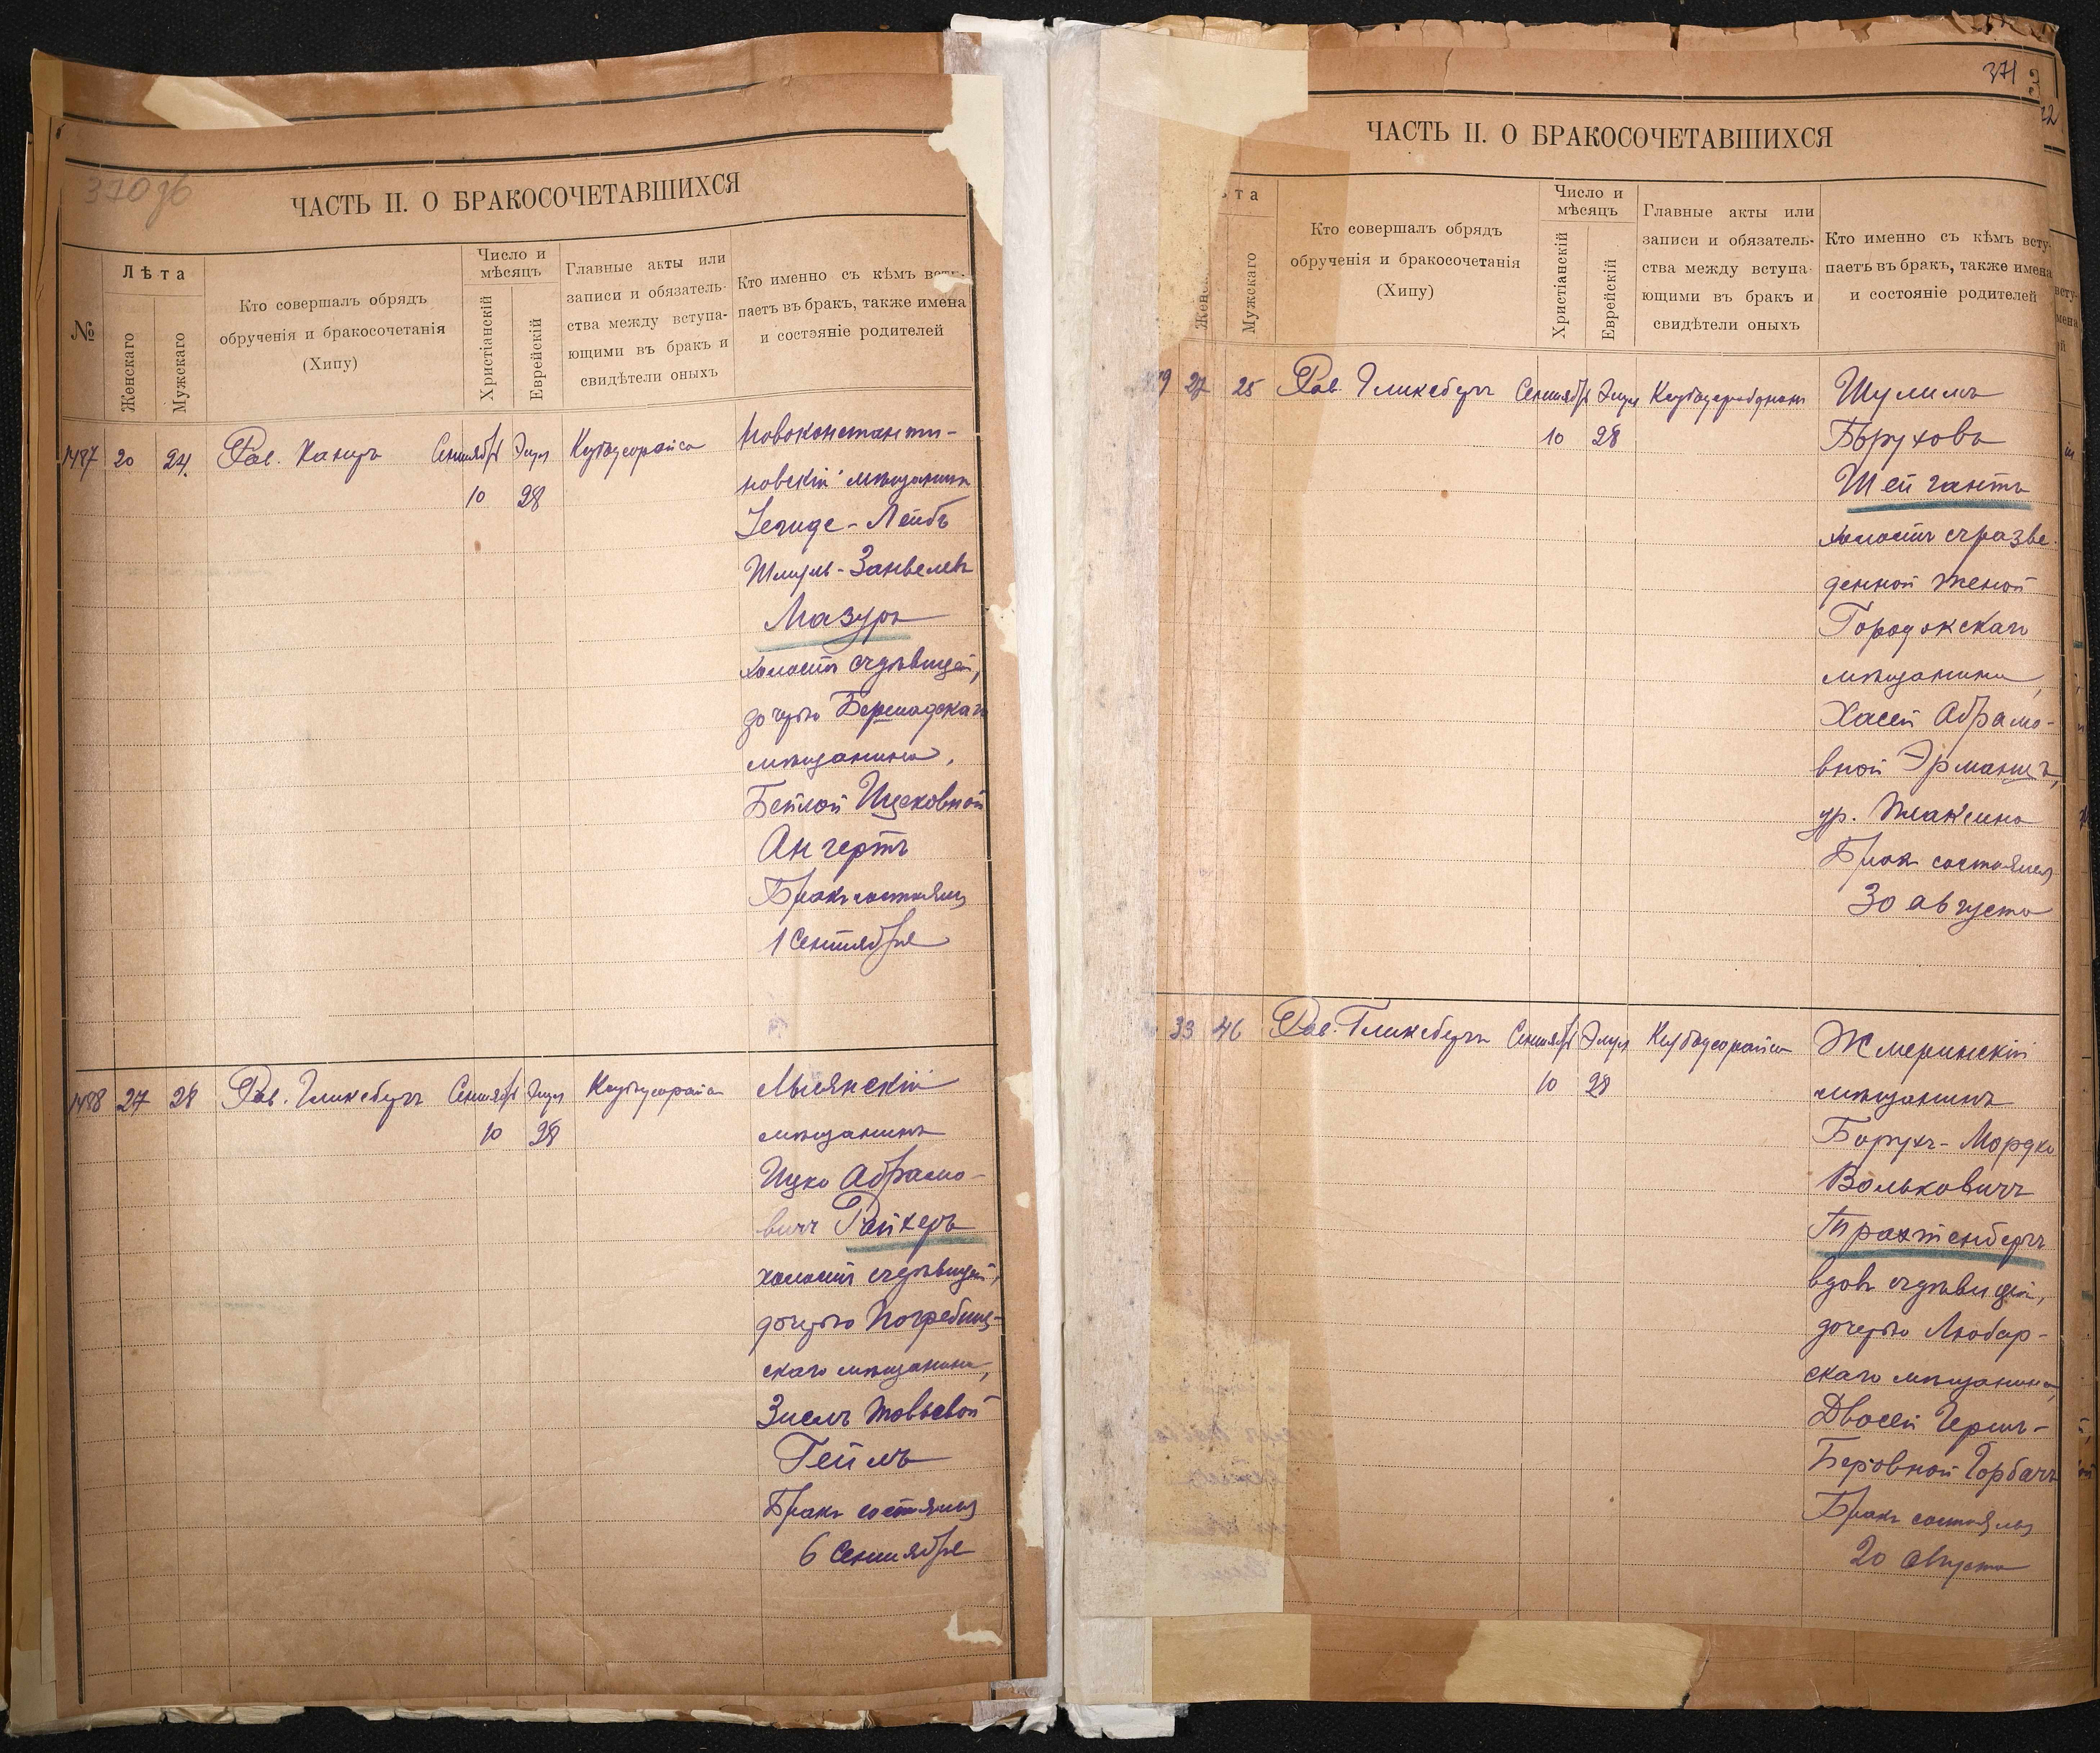 370 об
ЧАСТЬ II. О БРАКОСОЧЕТАВШИХСЯ
№
Лѣта
Женскаго
Мужскаго
Кто совершалъ обрядъ
обрученія и бракосочетанія
(Хипу)
Число и
мѣсяцъ
Христіанскій
Еврейскій
Главные акты или
записи и обязатель-
ства между вступа-
ющими въ бракъ и
свидѣтели оныхъ
Кто именно съ кѣмъ всту-
паетъ въ бракъ, также имена
и состояніе родителей
1487 20 24 Рав. Канцъ Сентябрь Элул
10 28
Новоконстанти-
новскій мѣщанинъ
Зейде-Лейбъ
Шмуль-Занвелевъ
Мазуръ
холостъ съ дѣвицей,
дочерью Бершадскаго
мѣщанина,
Бейлой Ицковной
Ангертъ
Бракъ состоялся
1 Сентября
1488 27 28 Рав. Гликсбергъ Сентябрь Элул
10 28
мѣщанинъ
Ицко Абрамо-
вичъ Райхеръ
холостъ съ дѣвицей,
дочерью Погребищ-
скаго мѣщанина,
Зислъ Товьевой
Гейлъ
Бракъ состоялся
6 Сентября
371
ЧАСТЬ II. О БРАКОСОЧЕТАВШИХСЯ
ѣта
Женск
Мужскаго
Кто совершалъ обрядъ
обрученія и бракосочетанія
(Хипу)
Число и
мѣсяцъ
Христіанскій
Еврейскій
Главные акты или
записи и обязатель-
ства между вступа-
ющими въ бракъ и
свидѣтели оныхъ
Кто именно съ кѣмъ всту-
паетъ въ бракъ, также имена
и состояніе родителей
9 27 25 Рав. Гликсбергъ Сентябрь Элул
10 28
Шулимъ
Боруховъ
Шейгантъ
холостъ съ разве-
денной женой
Городокскаго
мѣщанина,
Хасей Абрамо-
вной Эрманъ,
ур. Жаксина
Бракъ состоялся
30 августа
33 46 Рав. Гликсбергъ Сентябрь Элул
10 28
Жмеринскій
мѣщанинъ
Борухъ-Мордко
Вольковичъ
Трахтенбергъ
вдовъ съ дѣвицей,
дочерью Любар-
скаго мѣщанина,
Двосей Герш-
Беровной Горбачъ
Бракъ состоялся
20 августа